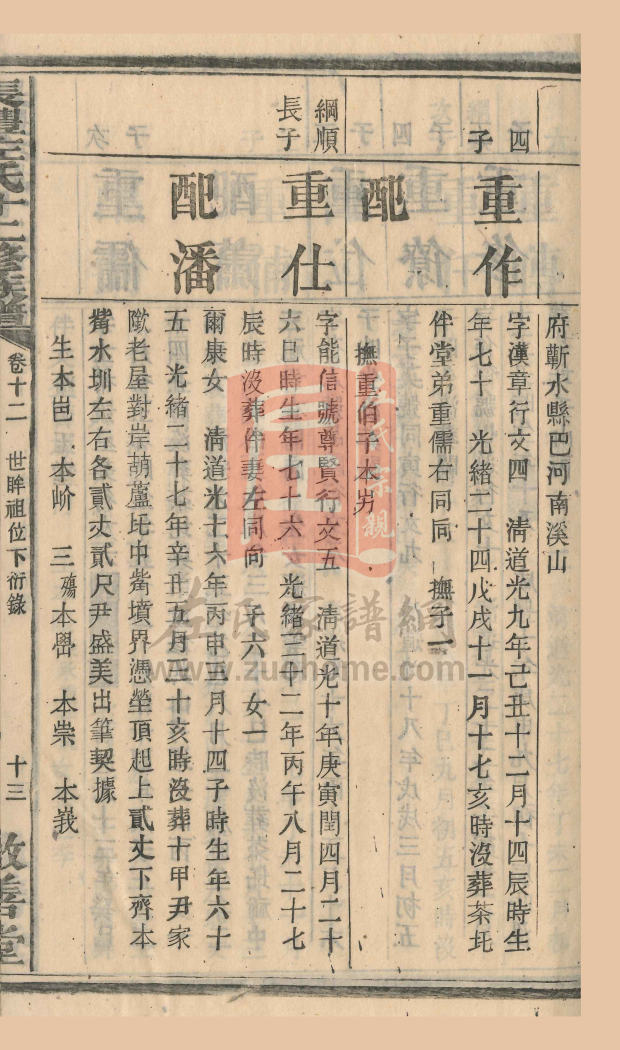 府蘄水縣巴河南溪山
四子
重作
字漢章行文四　淸道光九年己丑十二月十四辰時生
年七十　光緒二十四戊戌十一月十七亥時沒葬茶坵
仵堂弟重儒右同向　撫子一
配
撫重伯子本屶
綱順長子
重仕
字能信號尊賢行文五　淸道光十年庚寅閏四月二十
六巳時生年七十六　光緒三十二年丙午八月二十七
辰時沒葬仵妻左同向　子六　女一
配潘
爾康女　淸道光十六年丙申五月十四子時生年六十
五　光緒二十七年辛丑五月二十亥時沒葬十甲尹家
隞老屋對岸葫蘆坵中觜墳界憑塋頂起上貳丈下齊本
觜水圳左右各貳丈貳尺尹盛美出筆契據
生本岜　本岎　三殤　本嶨　本崇　本峩
長豐左氏十二修族譜
卷十二　世眸祖位下衍錄　十三　敦善堂
左氏宗親
左氏家譜網
www.zuohome.com